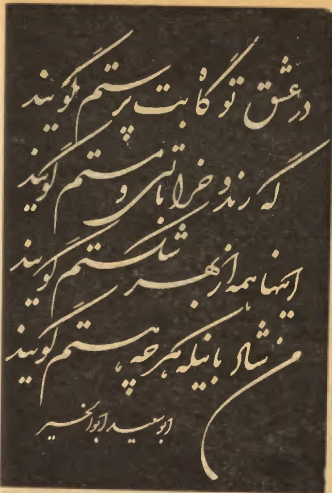 در عشق تو گاه بت پرستم گویند
گه رند و خراباتی و مستم گویند
اینها همه از بهر شکستم گویند
من شاد باینکه هر چه هستم گویند
ابوسعید ابوالخیر